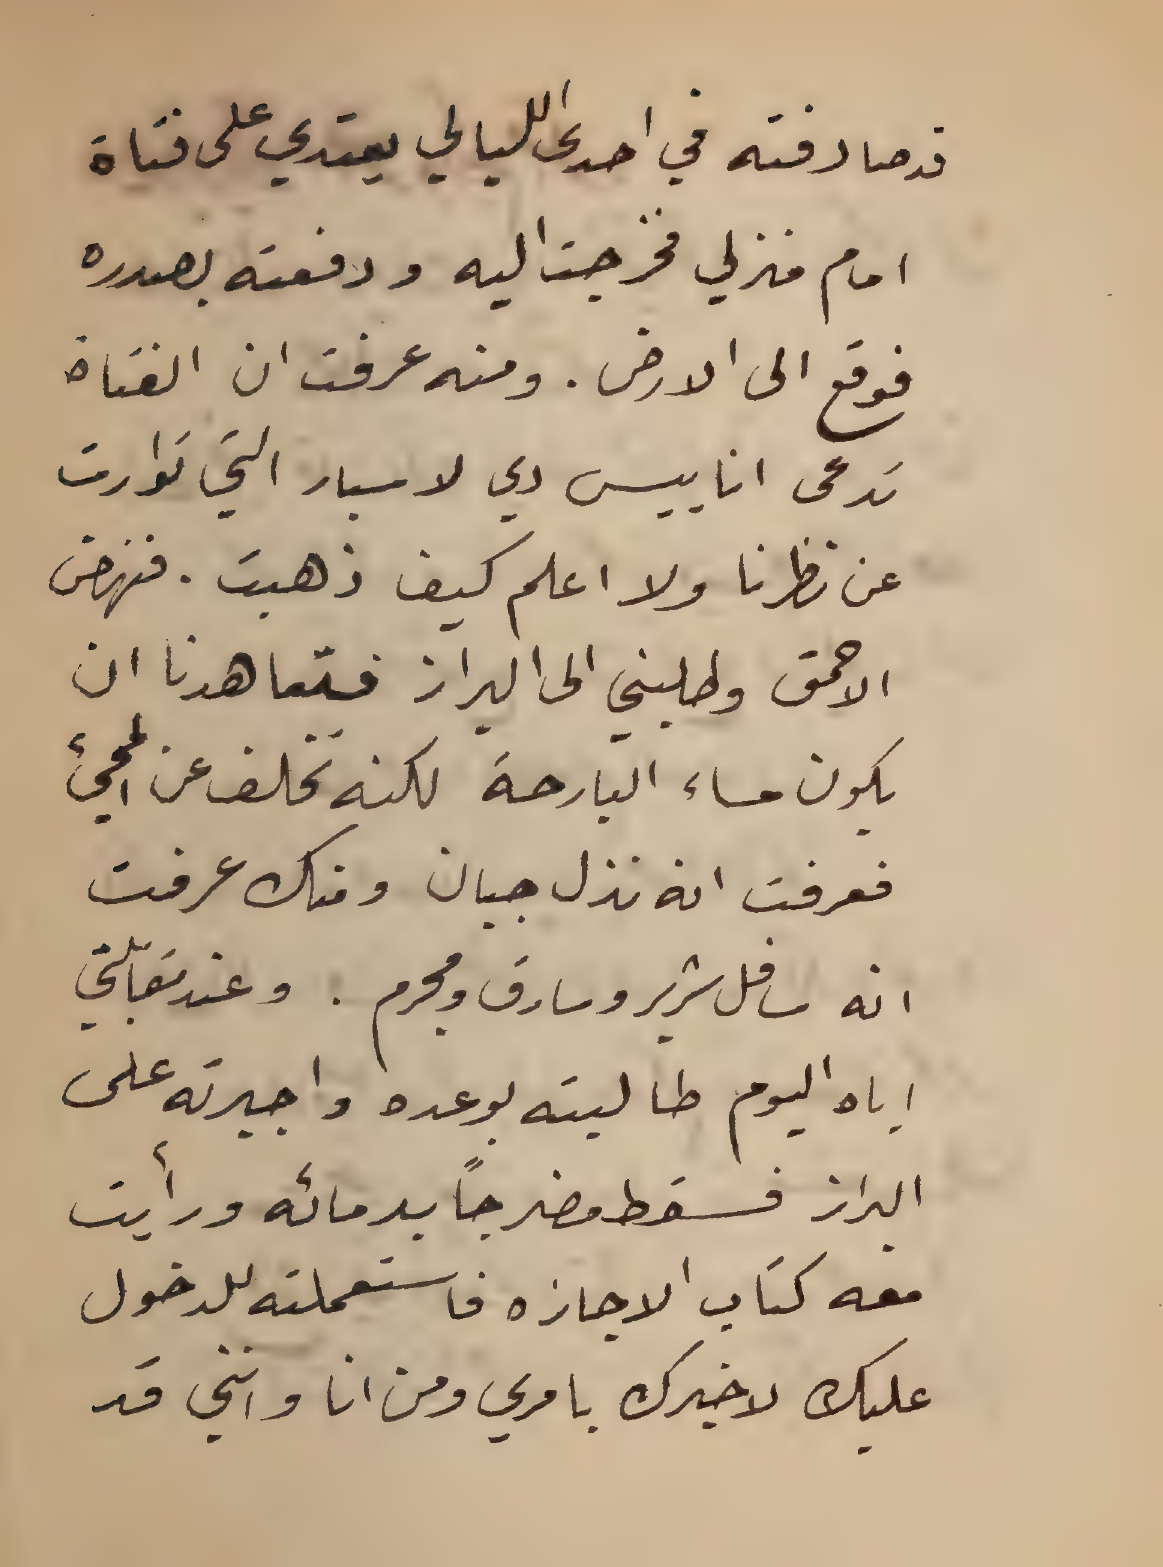 قد صادفته في احدى الليالي يعتدي على فتاة
امام منزلي فخرجت اليه ودفعته بصدره
فوقع الى الارض . ومنه عرفت ان الفتاة
تدعى انا ييس دي لا سبار التي توارت
عن نظرنا ولا اعلم كيف ذهبت . فنهض
الاحمق وطلبني الى البراز فتعاهدنا ان
يكون مساء البارحة لكنه تخلف عن المجيئ
فعرفت انه نذل جبان ومنك عرفت
انه سافل شرير وسارق ومجرم . وعند مقابلتي
اياه اليوم طالبته بوعده واجبرته على
البراز فسقط مضرجاً بدمائه ورأيت
معه كتاب الاجازه فاستعملته للدخول
عليك لاخبرك بامري ومن انا وانني قد